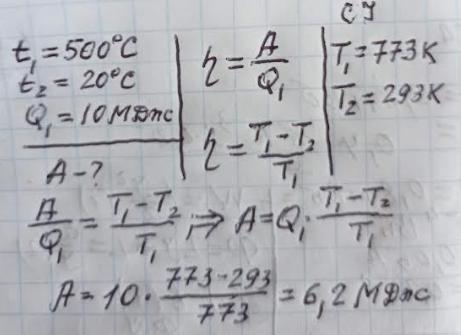 СИ
t₁ = 500°C
t₂ = 20°C
Q₁ = 10 МДж
A - ?
η = A/Q₁
η = (T₁ - T₂)/T₁
T₁ = 773 K
T₂ = 293 K
A/Q₁ = (T₁ - T₂)/T₁ ; ⇒ A = Q₁ · (T₁ - T₂)/T₁
A = 10 · (773 - 293)/773 = 6,2 МДж